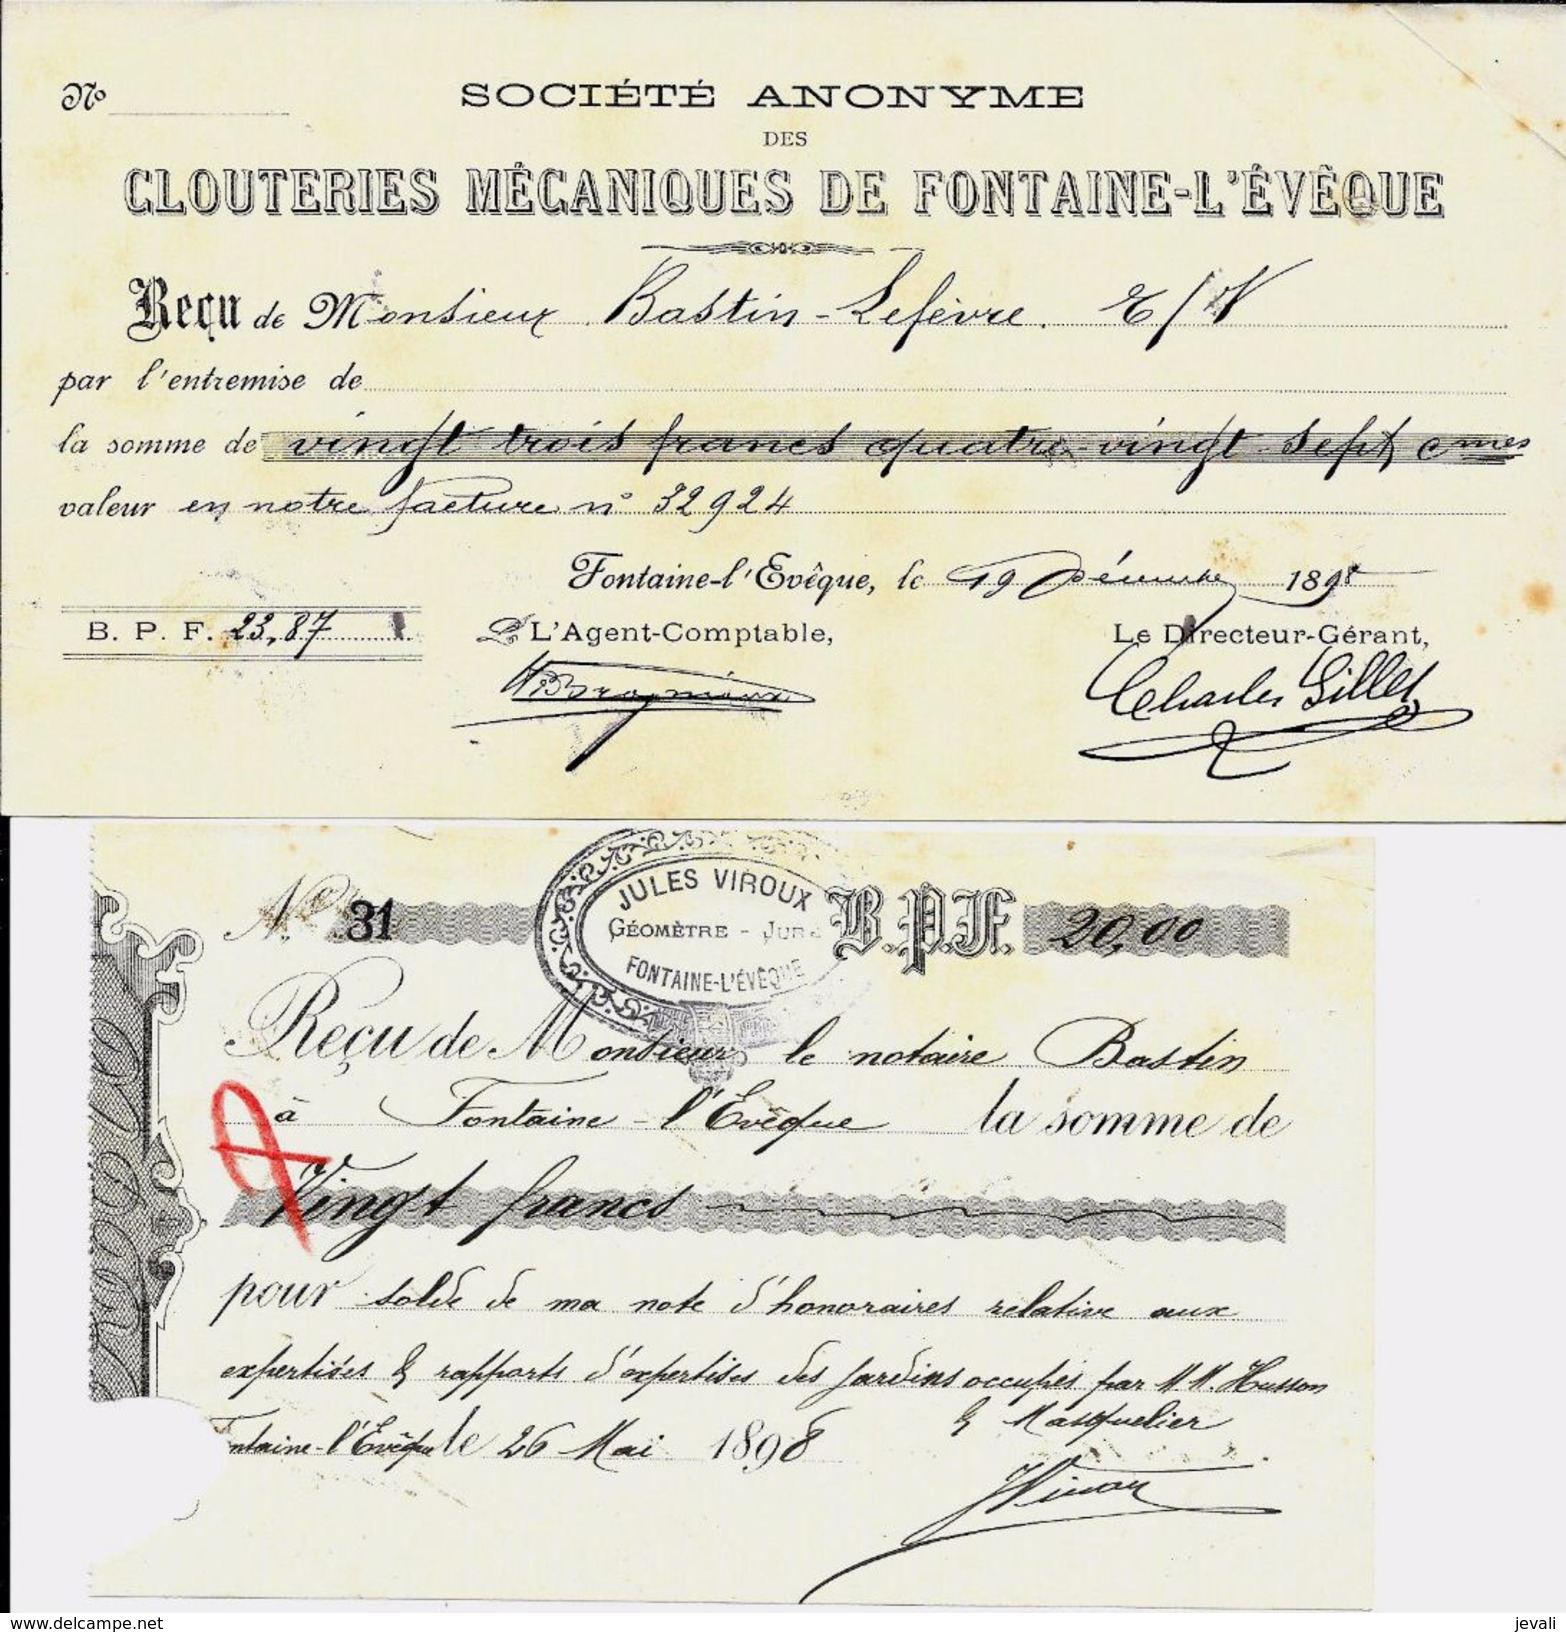 No
SOCIÉTÉ ANONYME
DES
CLOUTERIES MÉCANIQUES DE FONTAINE-L'ÉVÊQUE
Reçu de Monsieur Bastin-Lefèvre. E/V
par l'entremise de
la somme de vingt trois francs quatre-vingt sept cmes
valeur en notre facture n° 32924
Fontaine-l'Evêque, le 19 Décembre 1898
B. P. F. 23,87
L'Agent-Comptable,
Le Directeur-Gérant,
Charles Gillet
No. 31
JULES VIROUX
GÉOMÈTRE - JURÉ
FONTAINE-L'ÉVÊQUE
B.P.F. 20,00
Reçu de Monsieur le notaire Bastin
à Fontaine-l'Evêque la somme de
Vingt francs
pour solde de ma note d'honoraires relative aux
expertises & rapports d'expertises des jardins occupés par M M. Husson
& Masquelier
ntaine-l'Evêque le 26 Mai 1898
JViroux
www.delcampe.net
jevali